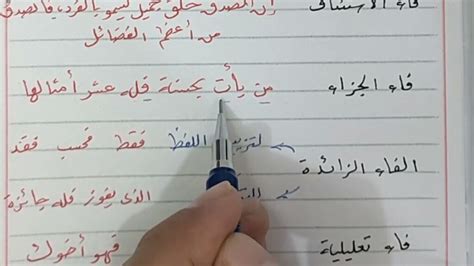 إن الصدق خلق جميل يسمو بالفرد، فالصدق
من أعظم الفضائل
فاء الجزاء من يأت بحسنة فله عشر أمثالها
لتزيين اللفظ فقط فحسب فقد
الفاء الزائدة
الذي يفوز فله جائزة
فاء تعليلية فهو أخوك